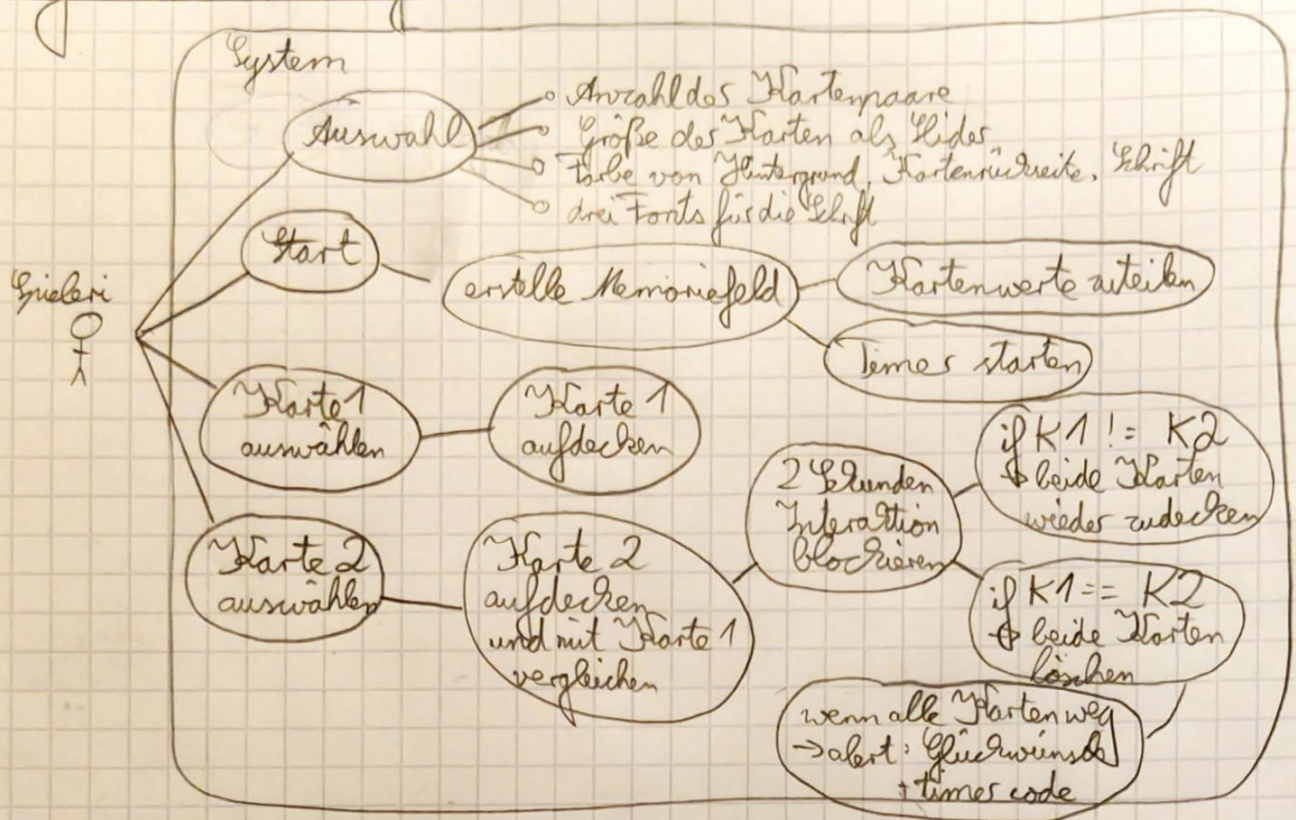 System
Auswahl
Anzahl der Kartenpaare
Größe der Karten als Slider
Farbe von Hintergrund, Kartenrückseite, Schrift
drei Fonts für die Schrift
Start
erstelle Memoriefeld
Kartenwerte zuteilen
Timer starten
Spieleri
Karte 1
auswählen
Karte 1
aufdecken
Karte 2
auswählen
Karte 2
aufdecken
und mit Karte 1
vergleichen
2 Sekunden
Interaktion
blockieren
if K1 != K2
beide Karten
wieder zudecken
if K1 == K2
beide Karten
löschen
wenn alle Karten weg
→ alert: Glückwunsch
+ timer code